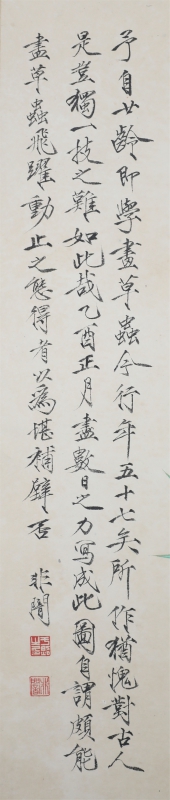 予自廿齡即學畫草蟲今行年五十七矣所作猶愧對古人
是豈獨一技之難如此哉乙酉正月盡數日之力寫成此圖自謂頗能
盡草蟲飛躍動止之態得者以為堪補壁否
非闇